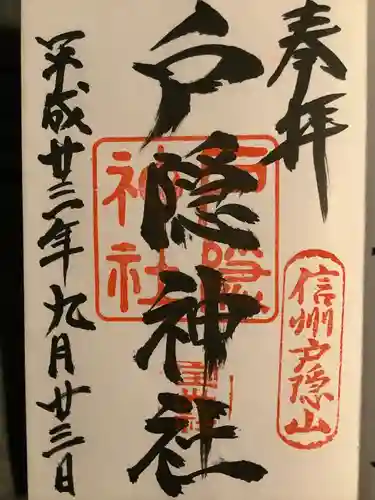 奉拝
信州戸隠山
戸隠神社
戸隠
神社
平成廿二年九月廿三日